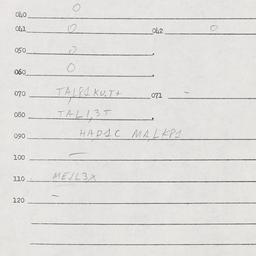 040 0
041 0 042 0
050 0
060 0
070 TAL81XU,T+ 071 -
080 TAL1,3T
090 HAD1C MA,LKP1
100 —
110 ME/L3X
120 –